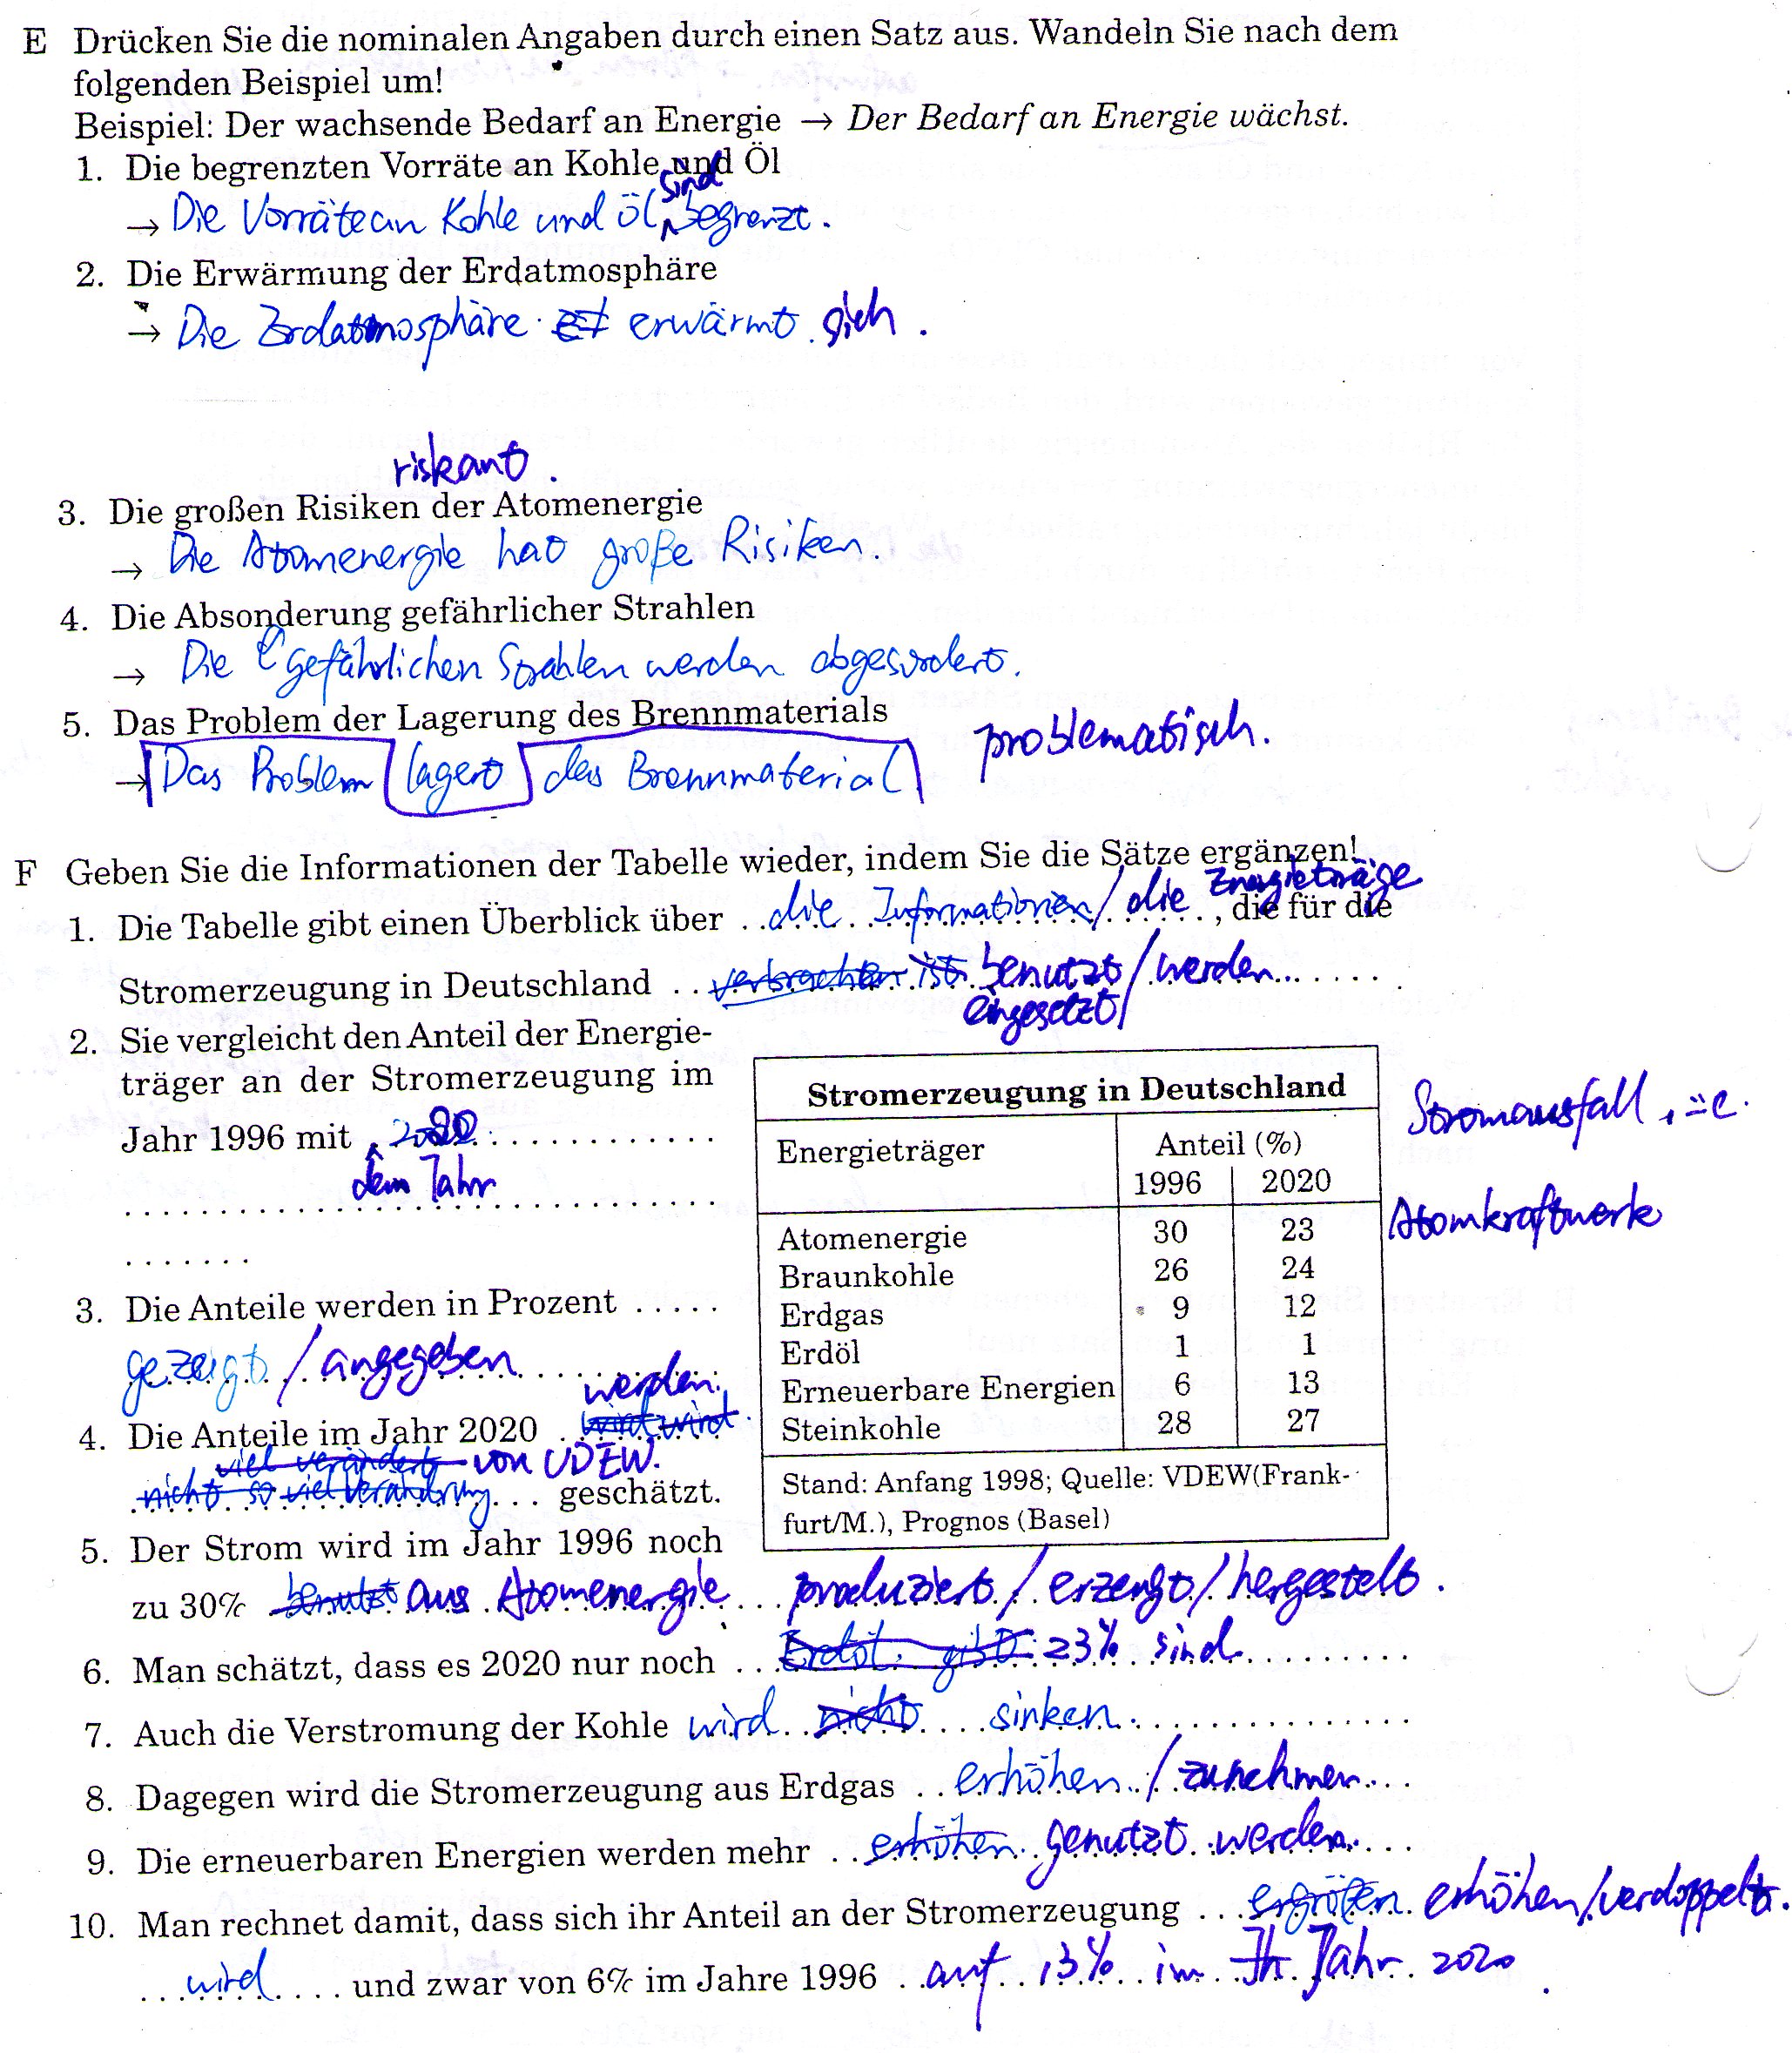 E Drücken Sie die nominalen Angaben durch einen Satz aus. Wandeln Sie nach dem
folgenden Beispiel um!
Beispiel: Der wachsende Bedarf an Energie → Der Bedarf an Energie wächst.
1. Die begrenzten Vorräte an Kohle und Öl
sind
→ Die Vorräte an Kohle und öl begrenzt.
2. Die Erwärmung der Erdatmosphäre
→ Die Erdatmosphäre erwärmt sich.
riskant.
3. Die großen Risiken der Atomenergie
→ Die Atomenergie hat große Risiken.
4. Die Absonderung gefährlicher Strahlen
→ Die gefährlichen Strahlen werden abgesondert.
5. Das Problem der Lagerung des Brennmaterials
problematisch.
→ Das Problem lagert das Brennmaterial
F Geben Sie die Informationen der Tabelle wieder, indem Sie die Sätze ergänzen!
1. Die Tabelle gibt einen Überblick über die Informationen / die Energieträge, die für die
Stromerzeugung in Deutschland ist benutzt / werden
eingesetzt /
2. Sie vergleicht den Anteil der Energie-
träger an der Stromerzeugung im
Jahr 1996 mit 2020
dem Jahr
Stromerzeugung in Deutschland
Energieträger Anteil (%)
1996 2020
Atomenergie 30 23
Braunkohle 26 24
Erdgas 9 12
Erdöl 1 1
Erneuerbare Energien 6 13
Steinkohle 28 27
Stand: Anfang 1998; Quelle: VDEW(Frank-
furt/M.), Prognos (Basel)
Stromausfall, ⸚e.
Atomkraftwerk
3. Die Anteile werden in Prozent .....
gezeigt / angegeben
werden
4. Die Anteile im Jahr 2020 wird wird
viel verändert von VDEW.
nicht so viel Verändrung ... geschätzt.
5. Der Strom wird im Jahr 1996 noch
zu 30% benutzt aus Atomenergie produziert / erzeugt / hergestellt.
6. Man schätzt, dass es 2020 nur noch Erdöl gibt 23% sind
7. Auch die Verstromung der Kohle wird nicht sinken
8. Dagegen wird die Stromerzeugung aus Erdgas erhöhen / zunehmen
9. Die erneuerbaren Energien werden mehr erhöhen genutzt werden
10. Man rechnet damit, dass sich ihr Anteil an der Stromerzeugung ergrößen erhöhen / verdoppelt.
wird und zwar von 6% im Jahre 1996 auf 13% im Jahr 2020.